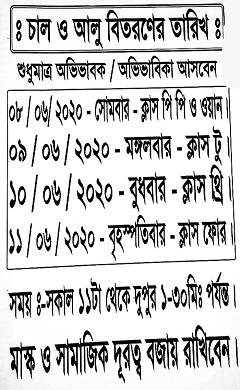 ঃ চাল ও আলু বিতরণের তারিখ ঃ
শুধুমাত্র অভিভাবক / অভিভাবিকা আসবেন
০৮ / ০৬ / ২০২০ - সোমবার - ক্লাস পি পি ও ওয়ান।
০৯ / ০৬ / ২০২০ - মঙ্গলবার - ক্লাস টু।
১০ / ০৬ / ২০২০ - বুধবার - ক্লাস থ্রি।
১১ / ০৬ / ২০২০ - বৃহস্পতিবার - ক্লাস ফোর।
সময় ঃ-সকাল ১১টা থেকে দুপুর ১-৩০মিঃ পর্যন্ত।
মাস্ক ও সামাজিক দূরত্ব বজায় রাখিবেন।